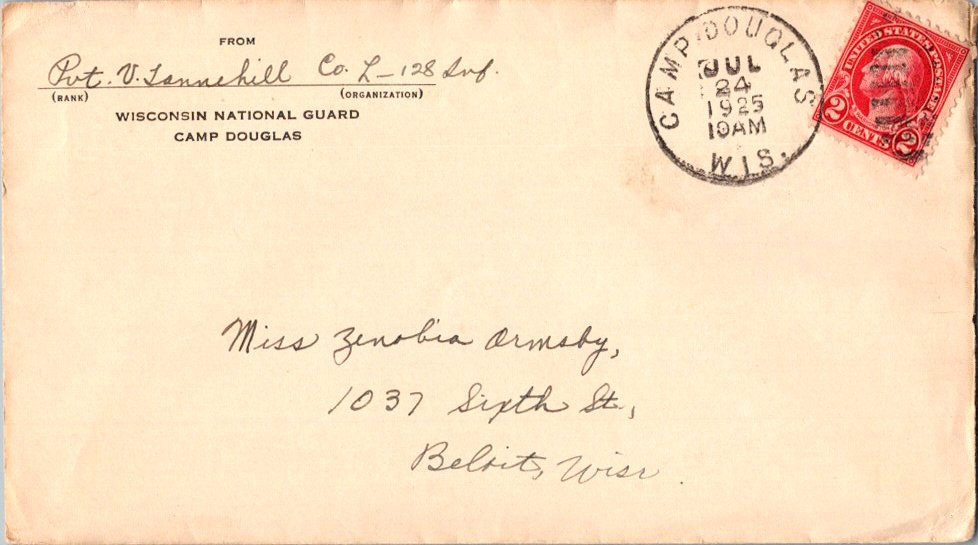 FROM
Pvt. V. Tannehill Co. L-128 Inf.
(RANK) (ORGANIZATION)
WISCONSIN NATIONAL GUARD
CAMP DOUGLAS
CAMP DOUGLAS
JUL
24
1925
10AM
WIS.
UNITED STATES POSTAGE
2 CENTS 2
Miss Zenobia Ormsby,
1037 Sixth St.,
Beloit, Wis.